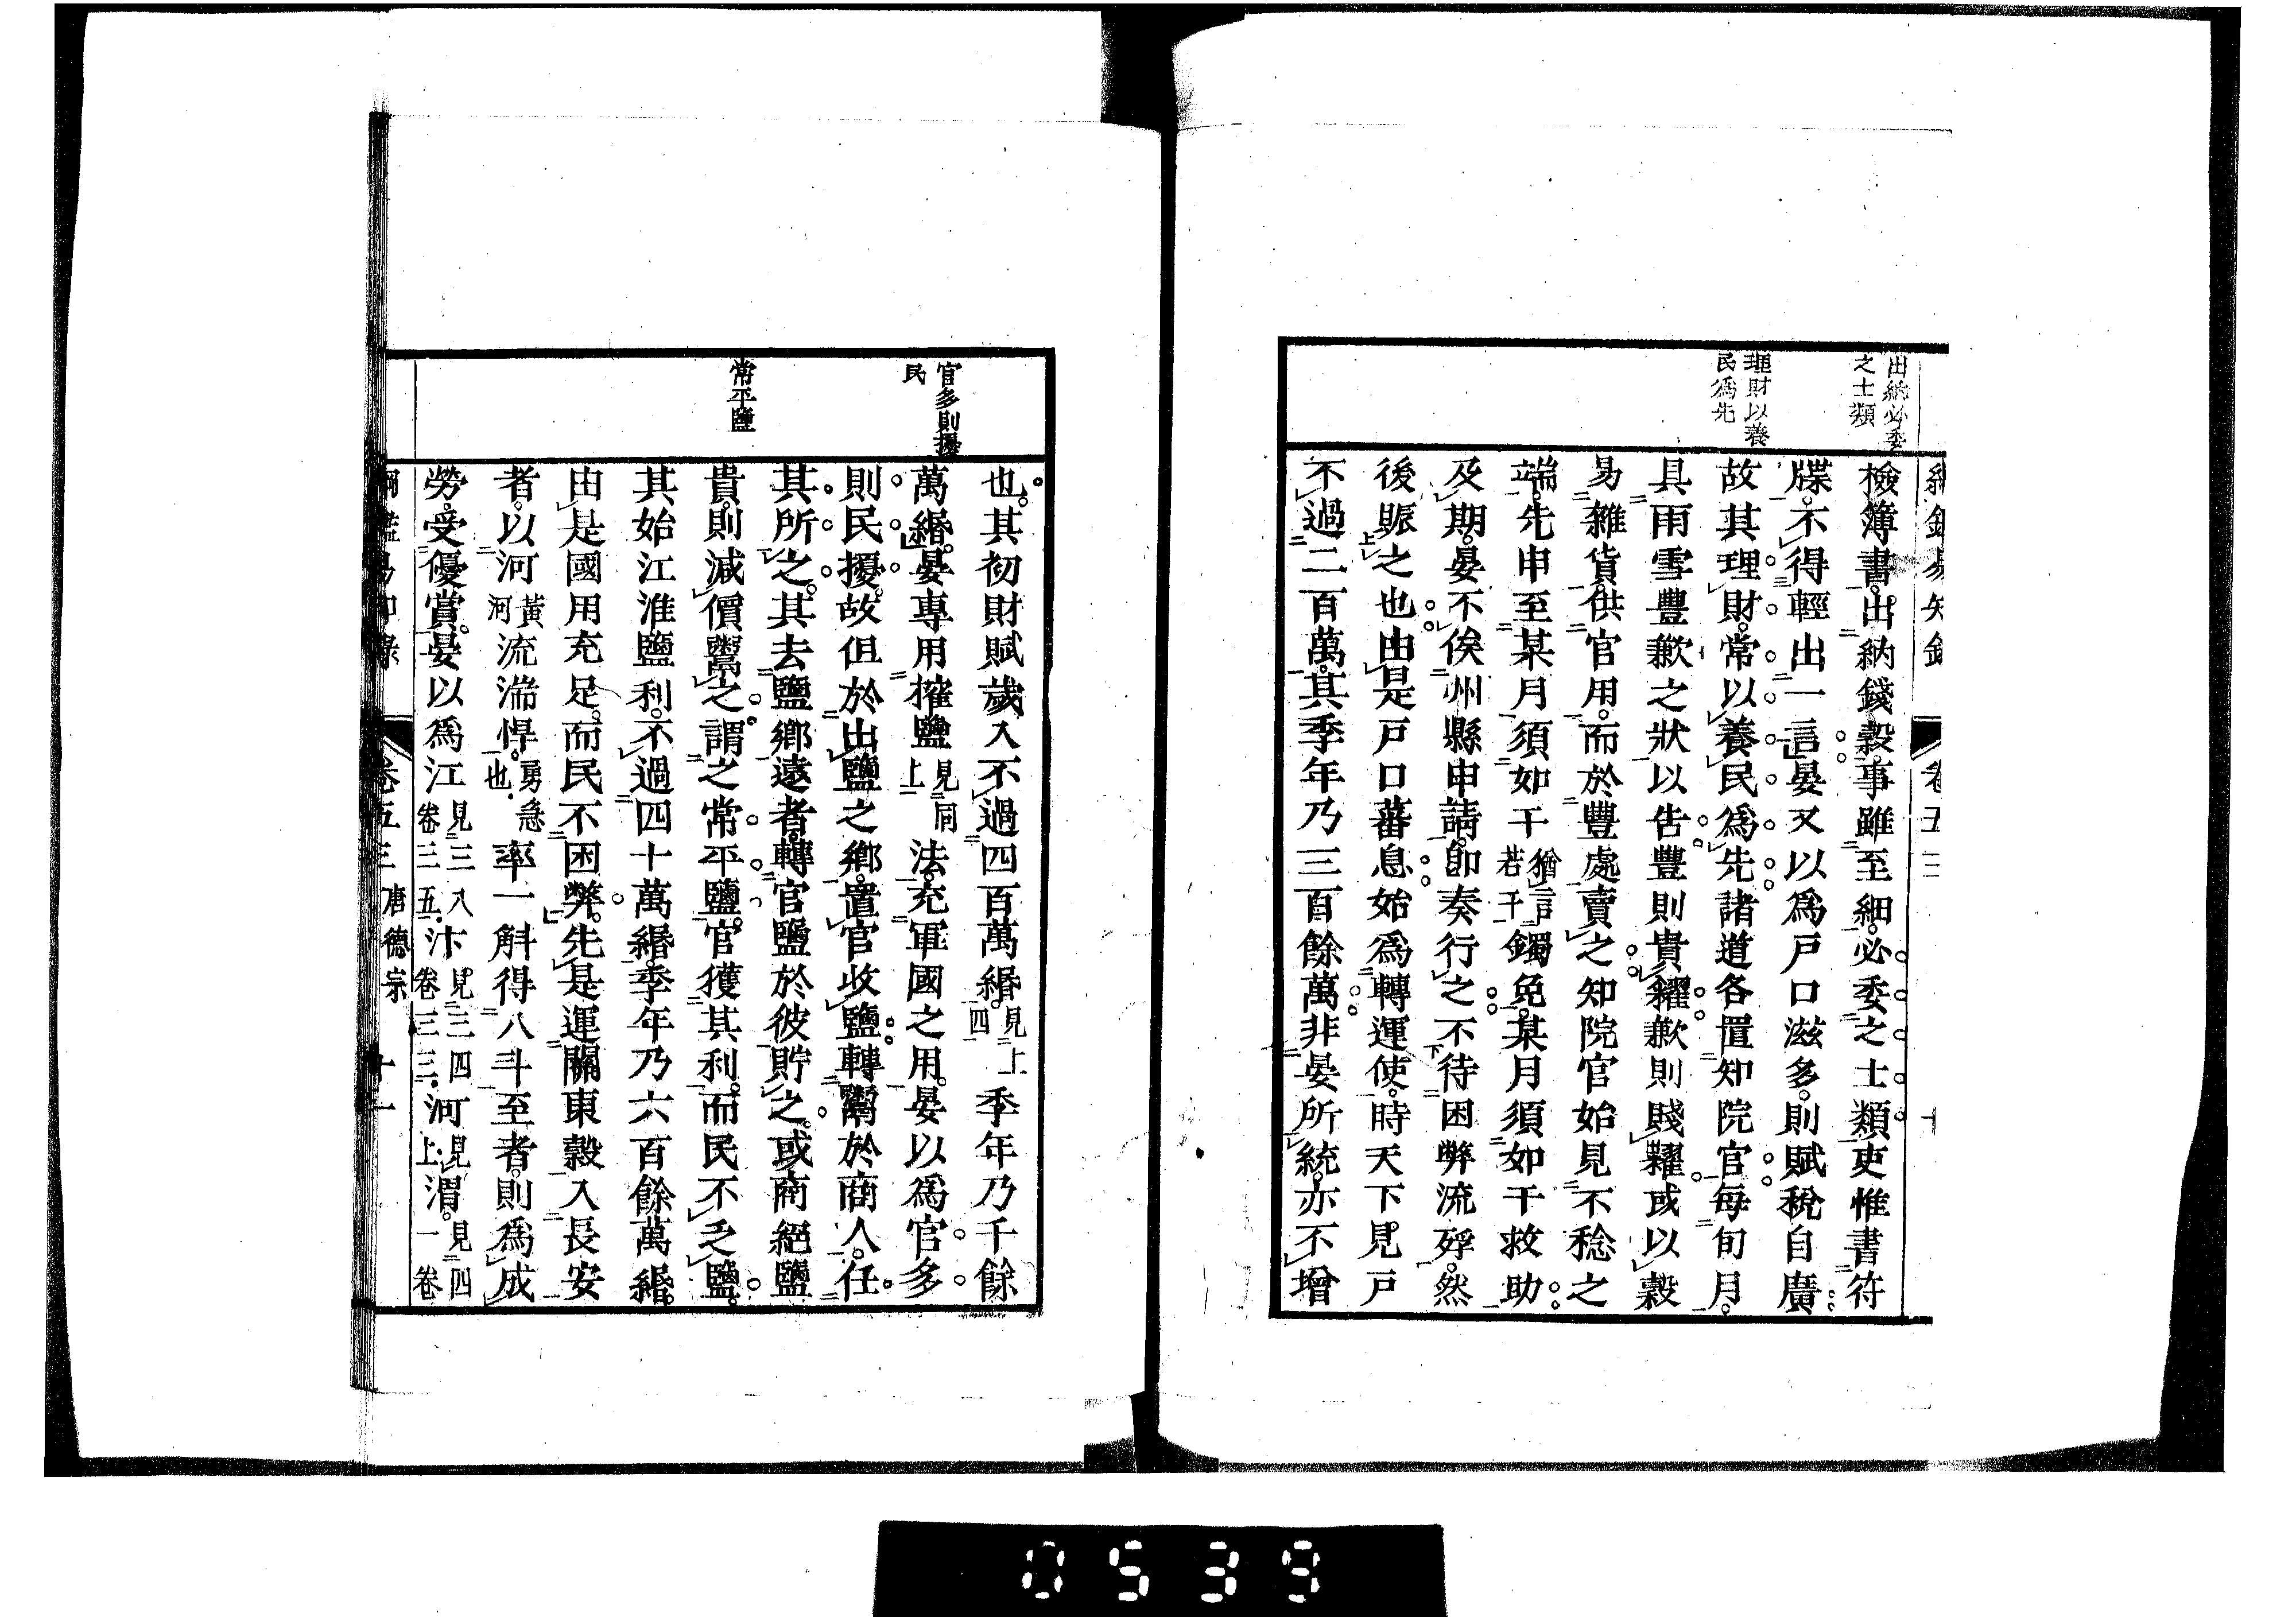 綱鑑易知錄 卷五三
出納必委
之士類
理財以養
民爲先
檢簿書。出納錢穀。事雖至細。必委之士類。吏惟書符
牒。不得輕出一言。晏又以爲戸口滋多。則賦稅自廣。
故其理財。常以養民爲先。諸道各置知院官。每旬月。
具雨雪豐歉之狀以告。豐則貴糴。歉則賤糶。或以穀
易雜貨。供官用。而於豐處賣之。知院官始見不稔之
端。先申至某月須如干猶言若干蠲免。某月須如干救助。
及期。晏不俟州縣申請。卽奏行之。不待困弊流殍。然
後賑之也。由是戸口蕃息。始爲轉運使。時天下見戸
不過二百萬。其季年乃三百餘萬。非晏所統。亦不增
官多則擾
民
常平鹽
也。其初財賦歲入不過四百萬緡。見上四季年乃千餘
萬緡。晏專用搉鹽見同上法。充軍國之用。晏以爲官多
則民擾。故但於出鹽之鄉。置官收鹽。轉鬻於商人。任
其所之。其去鹽鄉遠者。轉官鹽於彼貯之。或商絕鹽
貴。則減價鬻之。謂之常平鹽。官獲其利。而民不乏鹽。
其始江淮鹽利。不過四十萬緡。季年乃六百餘萬緡。
由是國用充足。而民不困弊。先是運關東穀入長安
者。以河黃河流湍悍。勇急也。率一斛得八斗至者。則爲成
勞。受優賞。晏以爲江見三八卷三五。汴見三四卷三三。河見上。渭。見四一卷
卷五三 唐德宗 十二